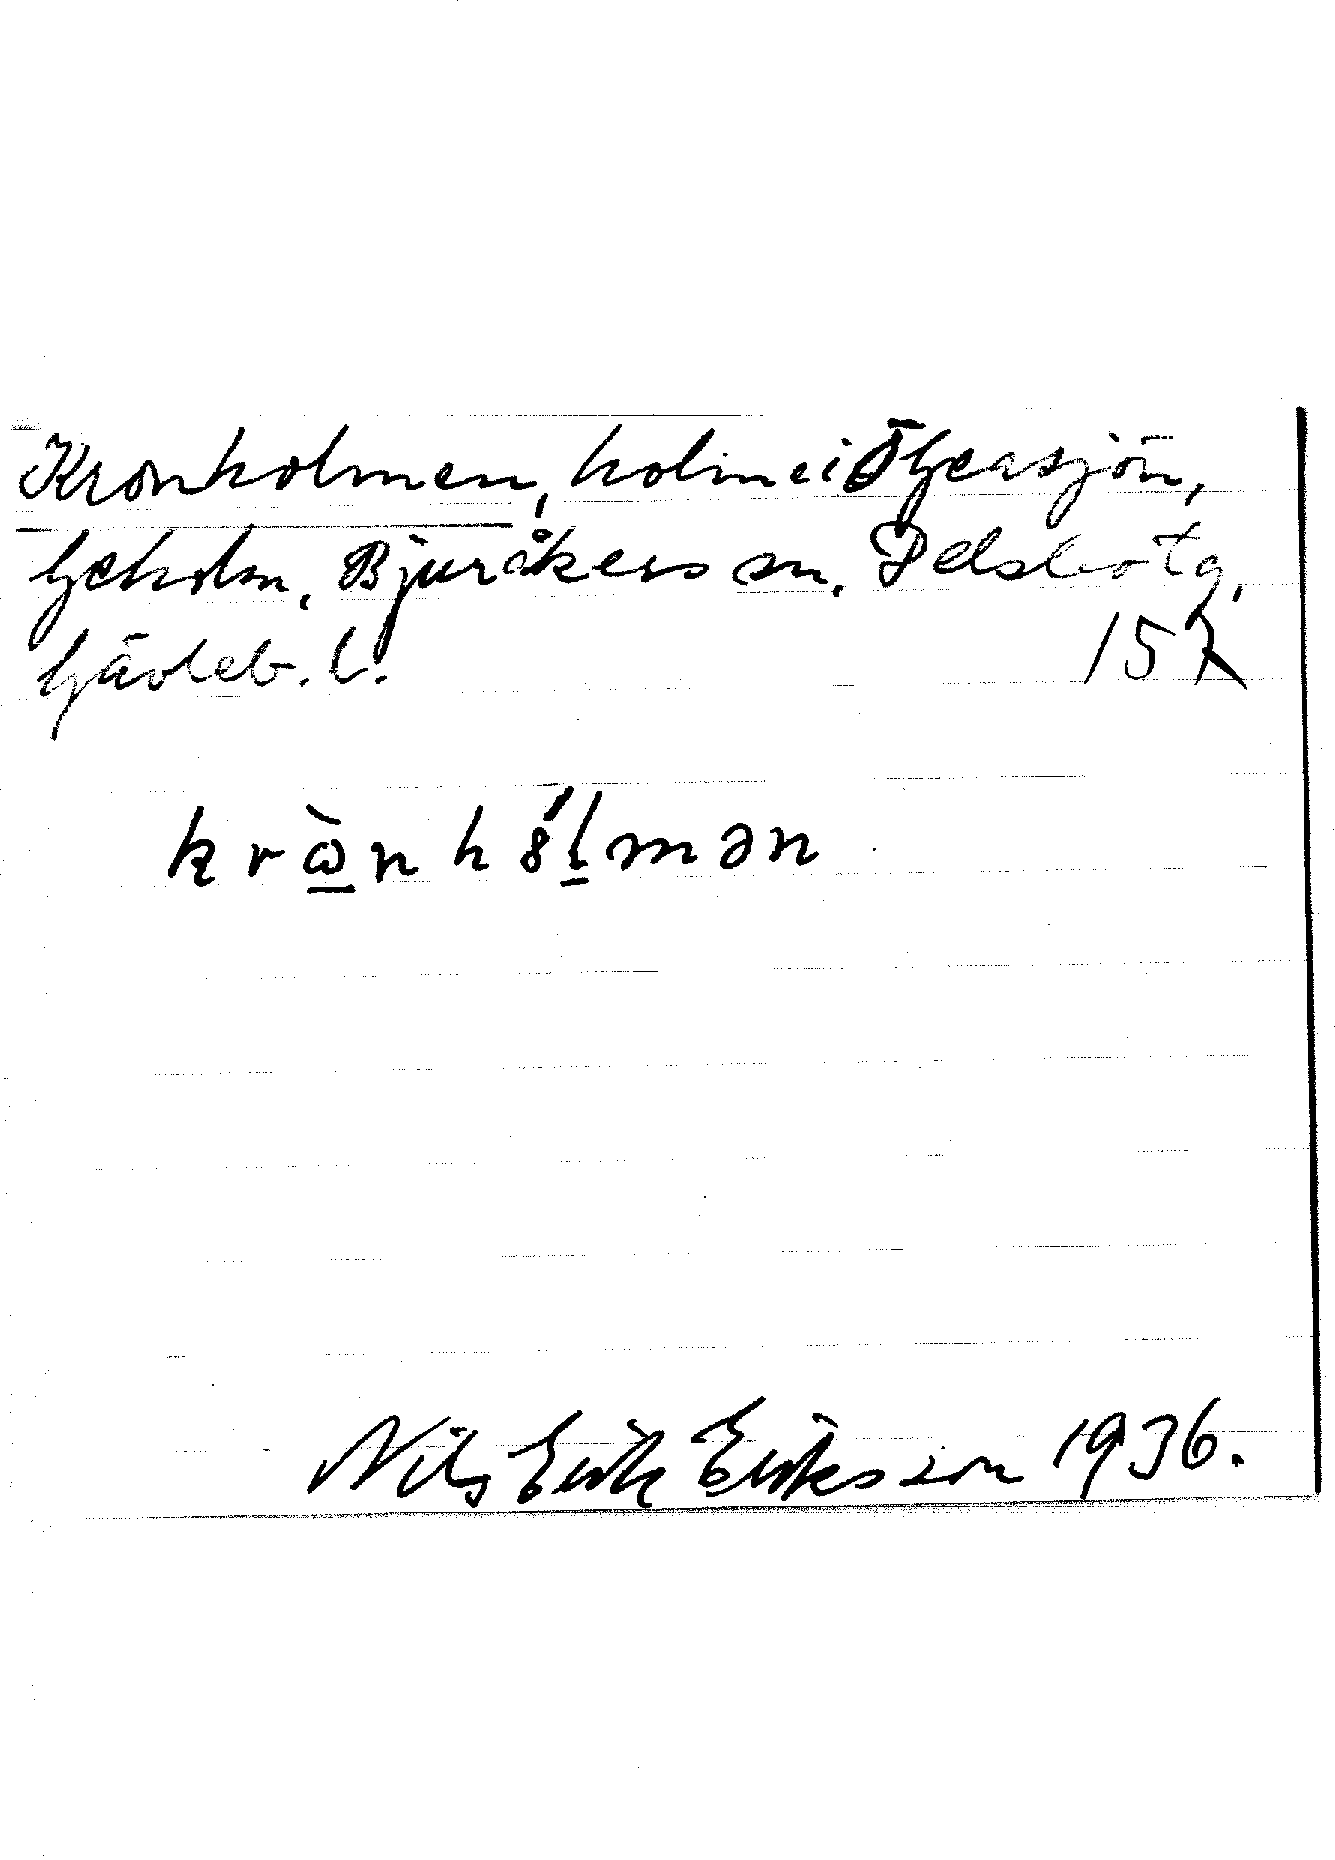 Kronholmen, holme i Ö Gersjön,
Geholm, Bjuråkers sn. Delsbo tg,
Gävleb. l. 157
krὼ̲nhó̤l̲mən
Nils Erik Eriksson 1936.